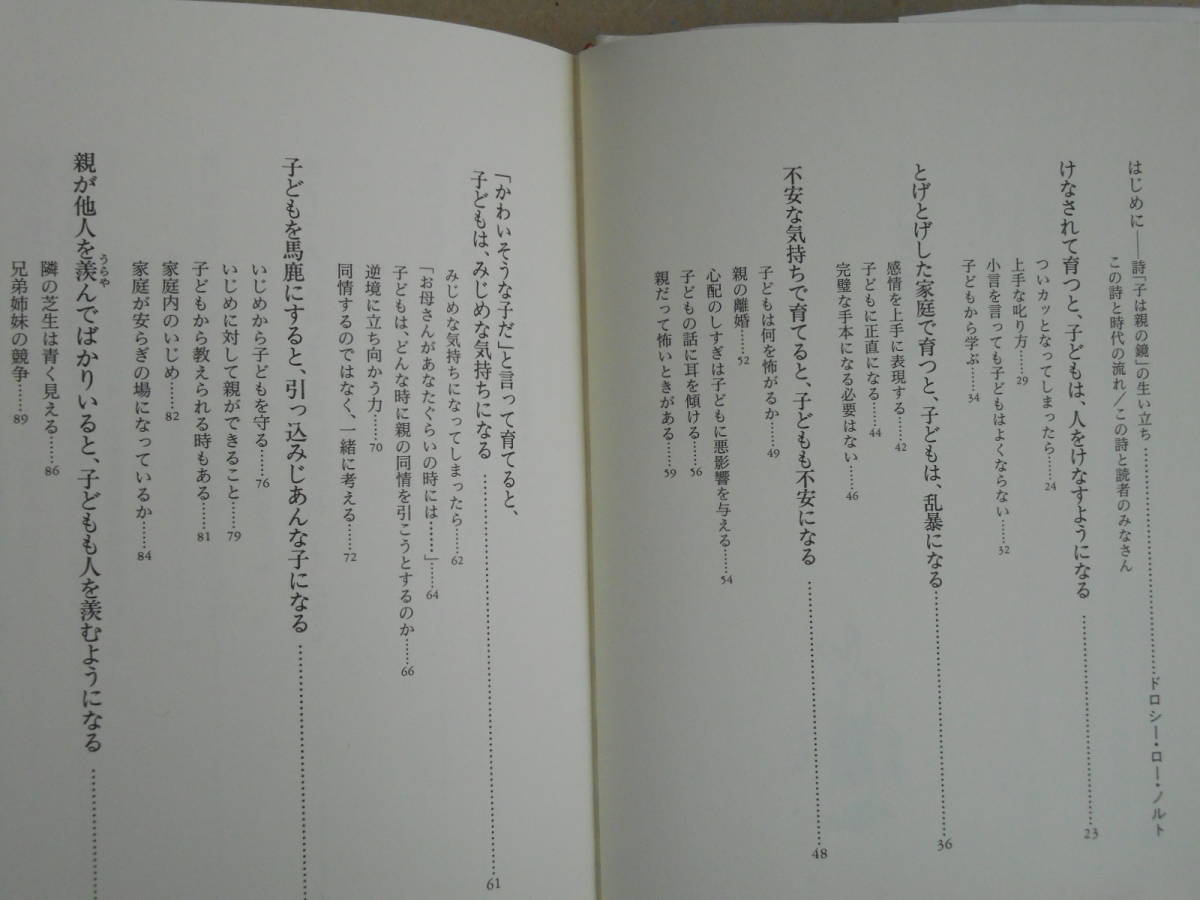 はじめに──詩「子は親の鏡」の生い立ち……………………ドロシー・ロー・ノルト
この詩と時代の流れ／この詩と読者のみなさん
けなされて育つと、子どもは、人をけなすようになる……………………23
ついカッとなってしまったら……24
上手な叱り方……29
小言を言っても子どもはよくならない……32
子どもから学ぶ……34
とげとげした家庭で育つと、子どもは、乱暴になる……………………36
感情を上手に表現する……42
子どもに正直になる……44
完璧な手本になる必要はない……46
不安な気持ちで育てると、子どもも不安になる……………………48
子どもは何を怖がるか……49
親の離婚……52
心配のしすぎは子どもに悪影響を与える……54
子どもの話に耳を傾ける……56
親だって怖いときがある……59
「かわいそうな子だ」と言って育てると、
子どもは、みじめな気持ちになる……………………61
みじめな気持ちになってしまったら……62
「お母さんがあなたぐらいの時には……」……64
子どもは、どんな時に親の同情を引こうとするのか……66
逆境に立ち向かう力……70
同情するのではなく、一緒に考える……72
子どもを馬鹿にすると、引っ込みじあんな子になる……………………
いじめから子どもを守る……76
いじめに対して親ができること……79
子どもから教えられる時もある……81
家庭内のいじめ……82
家庭が安らぎの場になっているか……84
親が他人を羨んでばかりいると、子どもも人を羨むようになる……………………
うらや
隣の芝生は青く見える……86
兄弟姉妹の競争……89